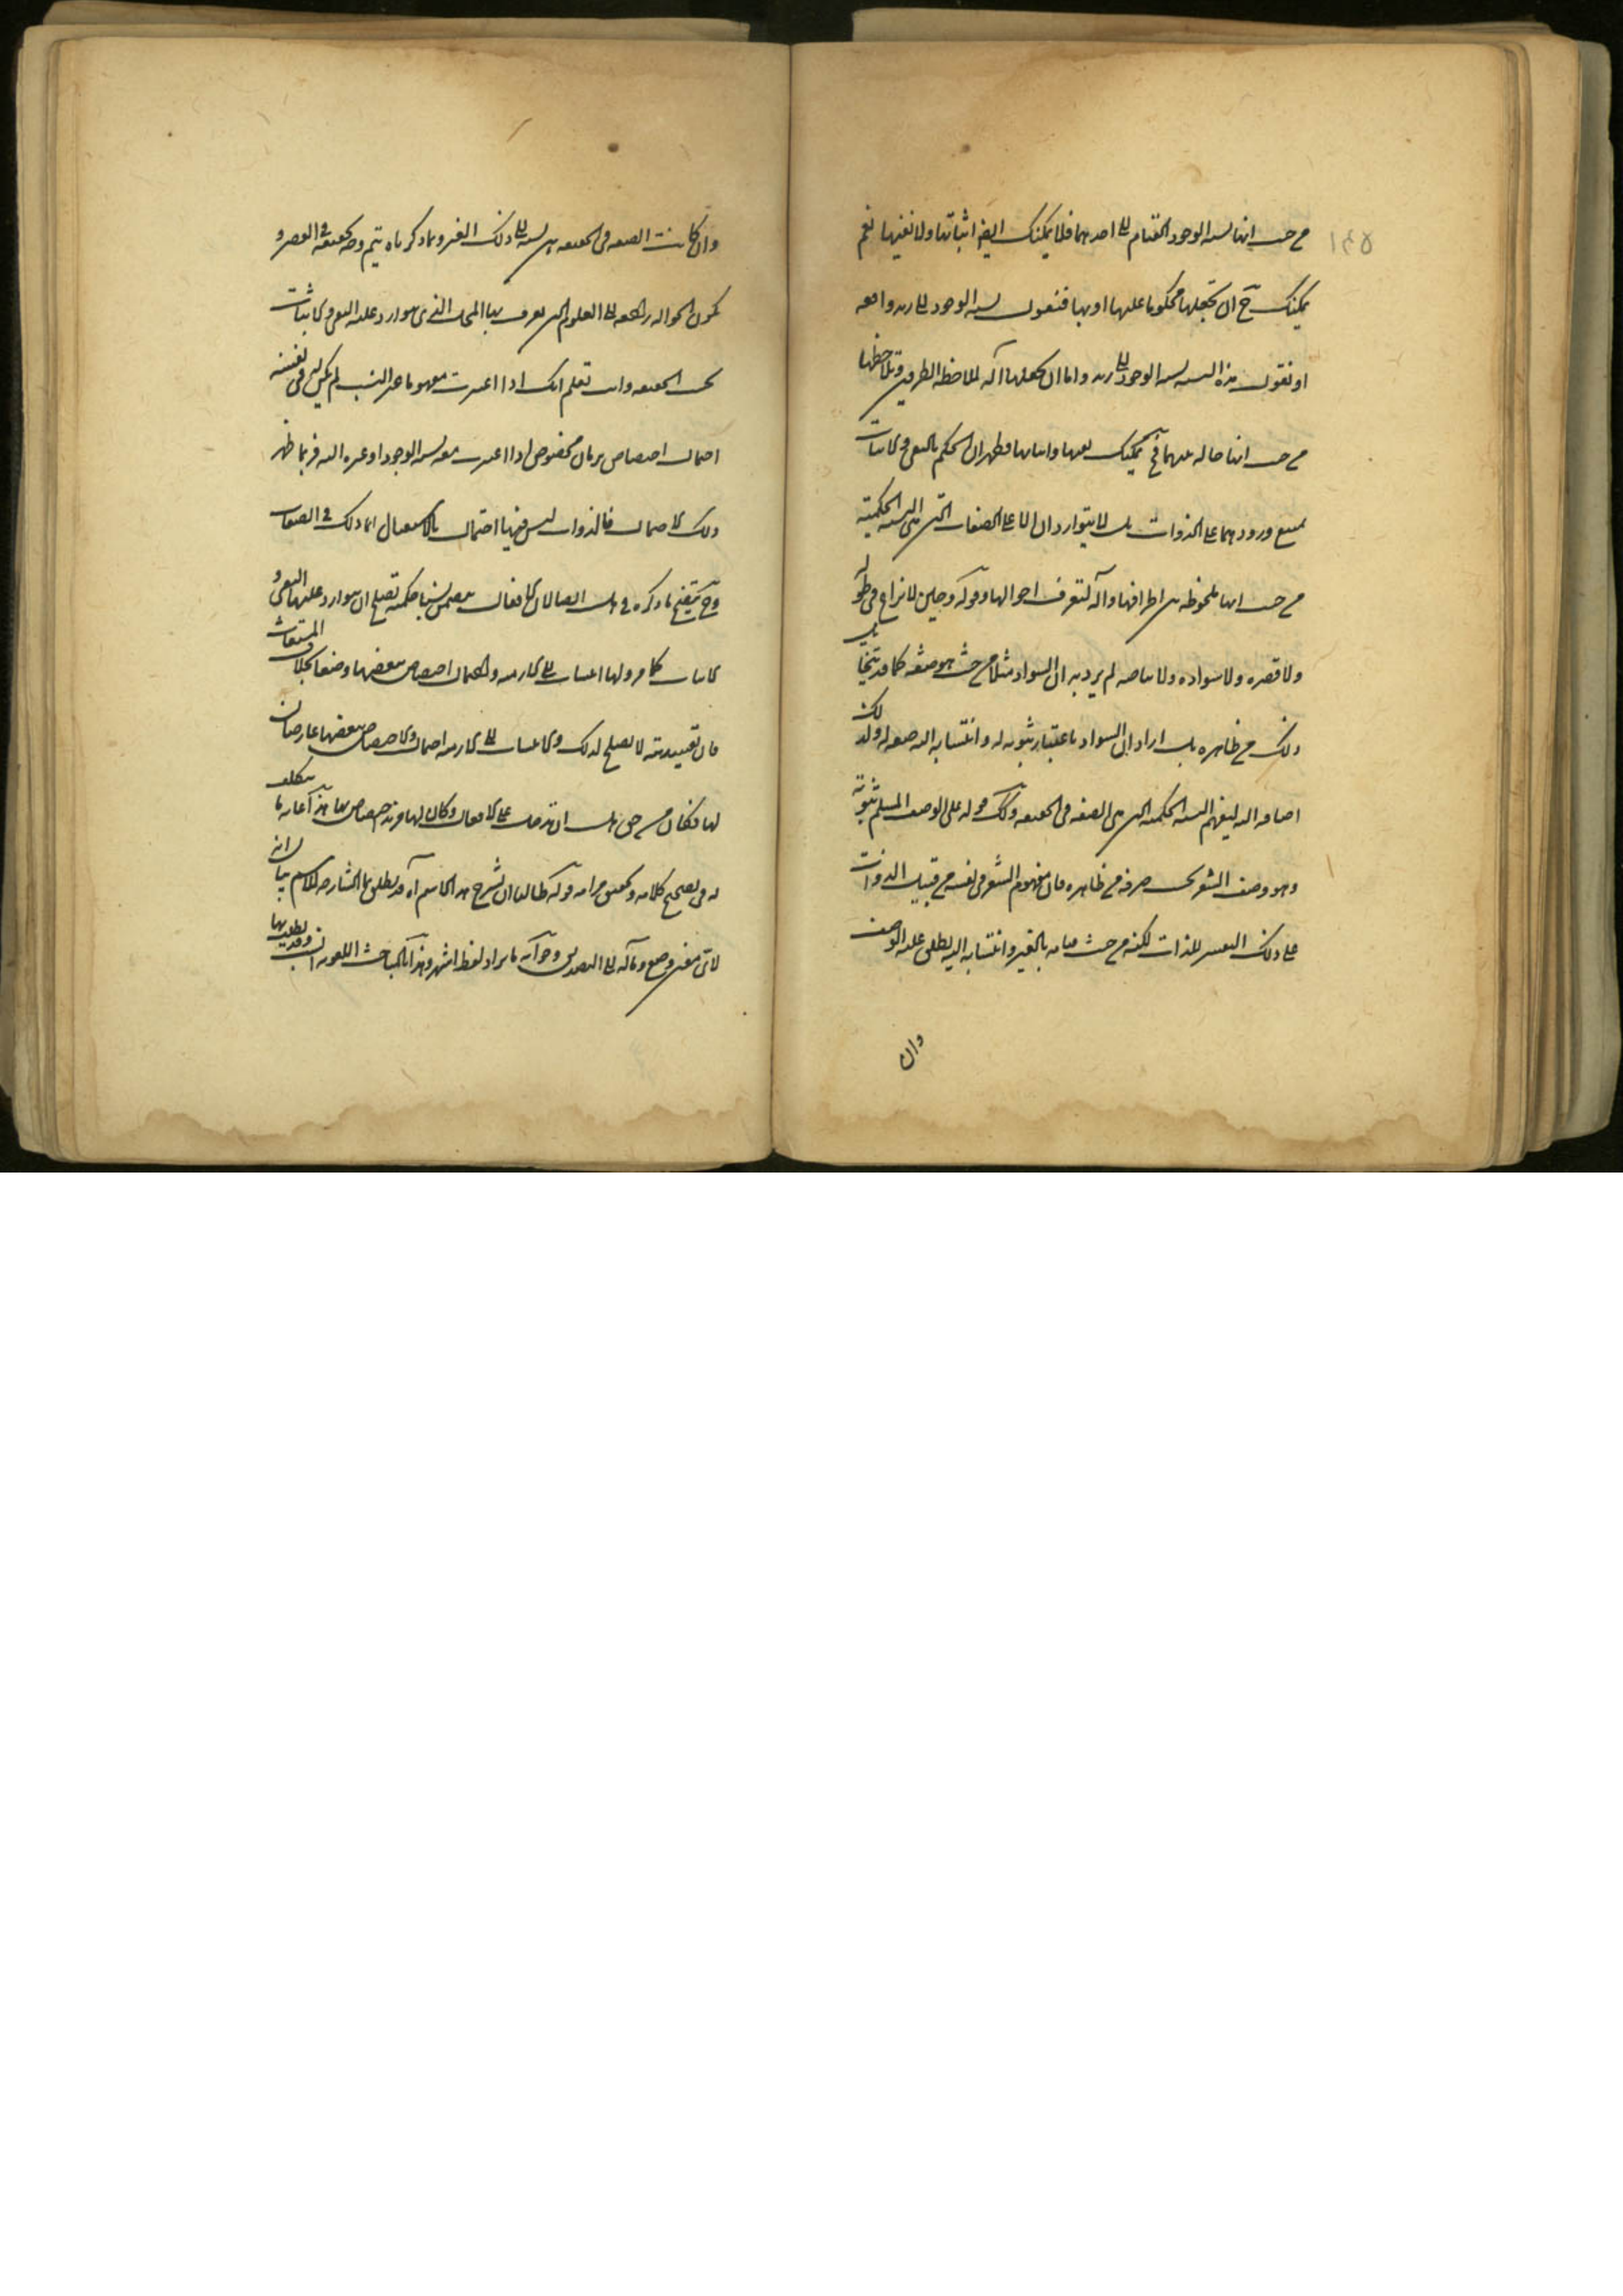 من حيث انها نسبة الوجود القيام الى احدهما فلا يمكنك ايضا اثباتها ولا نفيها نعم
يمكنك ح ان تجعلها محكوما عليها او بها فتقول نسبة الوجود الى زيد واقعه
او تقول هذه النسبه نسبة الوجود الى زيد واما ان تجعلها آلة لملاحظة الطرفين وتلاحظها
من حيث انها حالة بينهما فح يمكنك نفيها واثباتها فظهر ان الحكم بالنفى والاثبات
يمتنع ورودهما على الذوات بل لا يتواردان الا على الصفات التى هى النسبة الحكمية
من حيث انها ملحوظة بين اطرافها وآلة لتعرف احوالها وقوله وحين لا نزاع فى طوله
ولا قصره ولا سواده ولا بياضه لم يرد به ان السواد مثلا من حيث هو صفة كما قد يتخايل
ذلك من ظاهره بل اراد ان السواد باعتبار ثبوته له وانتسابه اليه صفة له ولذلك
اضافه اليه ليفهم النسبة الحكمية التى هى الصفة فى الحقيقة وكذلك قوله على الوصف المسلم ثبوته
وهو وصف الشعر صرفه من ظاهره فان مفهوم الشعر فى نفسه من قبيل الذوات
على ذلك التفسير للذات لكنه من حيث قيامه بالغير وانتسابه اليه يطلق عليه الوصف
وان
وان كانت الصفة فى الحقيقة هى نسبة الى ذلك الغير وبما ذكرناه يتم وجه تحقيقه فى القصر و
تكون الحوالة راجعة الى العلوم التى يعرف بها المحل الذى يتوارد عليه النفى والاثبات
بحسب الحقيقة وانت تعلم انك اذا اعتبرت مفهوما غير النسب لم يكن له فى نفسه
احتمال اختصاص بزمان مخصوص اذا اعتبرت معه نسبة الوجود او غيره اليه فربما ظهر
ذلك الاحتمال فالذوات ليس فيها احتمال الاستقبال انما ذلك فى الصفات
وح يتضح ما ذكره فى هل ايضا لان الافعال تتضمن نسبا حكمية تصلح ان يتوارد عليها النفى و
الاثبات كما مر ولها انتساب الى الازمنة واحتمال اختصاص ببعضها وضعا بخلاف المشتقات
فان تقييديته لا تصلح لذلك ولا انتساب الى الازمنة احتمال والاختصاص ببعضها عارضان
لها فكان من حق هل ان تدخل على الافعال وكان لها مزيد اختصاص بها هذا غاية ما يتكلف
له فى تصحيح كلامه وتحقيق مرامه قوله طالبا ان يشرح هذا الاسم آه قد يطلق ما الشارحة للاسم بيانا لانه
لاى معنى وضع ومآله الى التصديق وجوابه بايراد لفظ اشهر وهذا بالمباحث اللغوية انسب وقد يطلب بها